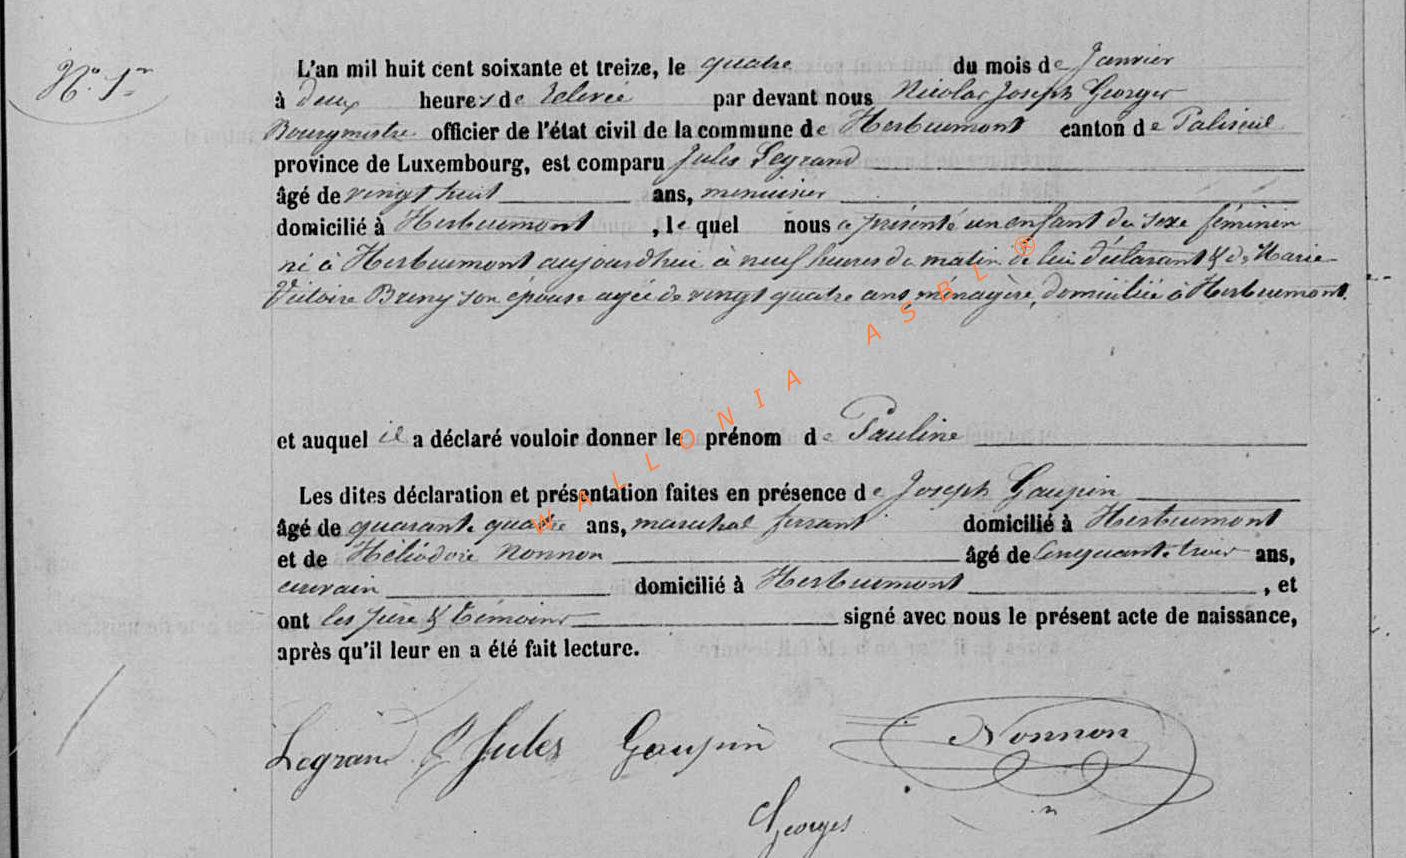 N° 1er
L'an mil huit cent soixante et treize, le quatre du mois de Janvier
à deux heures de relevée par devant nous Nicolas Joseph Georges
Bourgmestre officier de l'état civil de la commune de Herbeumont canton de Paliseul
province de Luxembourg, est comparu Jules Legrand
âgé de vingt huit ans, menuisier
domicilié à Herbeumont, le quel nous a présenté un enfant du sexe féminin
né à Herbeumont aujourd'hui à neuf heures du matin de lui déclarant & de Marie
Victoire son épouse agée de vingt quatre ans, ménagère, domiciliée à Herbeumont.
et auquel il a déclaré vouloir donner le prénom de Pauline
Les dites déclaration et présentation faites en présence de Joseph Gaupin
âgé de quarante quatre ans, marechal ferrant domicilié à Herbeumont
et de Héliodore Nonnon âgé de Cinquante trois ans,
domicilié à Herbeumont, et
ont les père & témoins signé avec nous le présent acte de naissance,
après qu'il leur en a été fait lecture.
Legrand Jules Gaupin Nonnon
Georges
WALLONIA ASBL ®